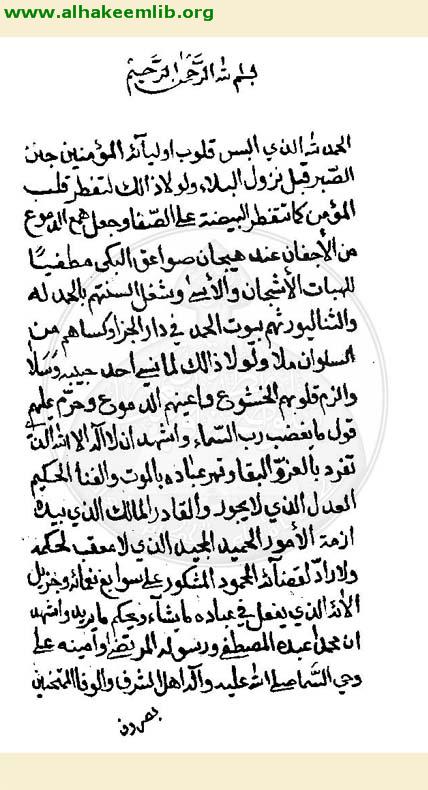 www.alhakeemlib.org
بسم الله الرحمن الرحيم
الحمد لله الذي البس قلوب اوليآئه المؤمنين جنن
الصبر قبل نزول البلاء ولولا ذالك لتفطر قلب
المؤمن كما تتفطر البيضة على الصفا وجعل همع الدموع
من الأجفان عند هيجان صواعق البكى مطفيًا
للهبات الأشجان والأسى وشغل السنتهم بالحمد له
والثنا ليورثهم بيوت الحمد في دار الجزا وكساهم من
السلوان ملا ولولا ذالك لما نسي احد حبيبه وسلا
والزم قلوبهم الخشوع واعينهم الدموع وحرّم عليهم
قول ما يغضب رب السّماء واشهد ان لا اله الا الله الذي
تفرد بالعزّ والبقا وقهر عباده بالموت والفنا الحكيم
العدل الذي لا يجور والقادر المالك الذي بيده
ازمة الأمور الحميد المجيد الذي لا معقب لحكمه
ولا رادّ لقضآئه المحمود المشكور على سوابغ نعمائه وجزيل
الآئه الذي يفعل في عباده ما يشآء ويحكم ما يريد واشهد
ان محمدا عبده المصطفى ورسوله المرتضى وامينه على
وحي السّما صلى الله عليه وآله اهل الشرف والوفا الممتحنين
بصروف